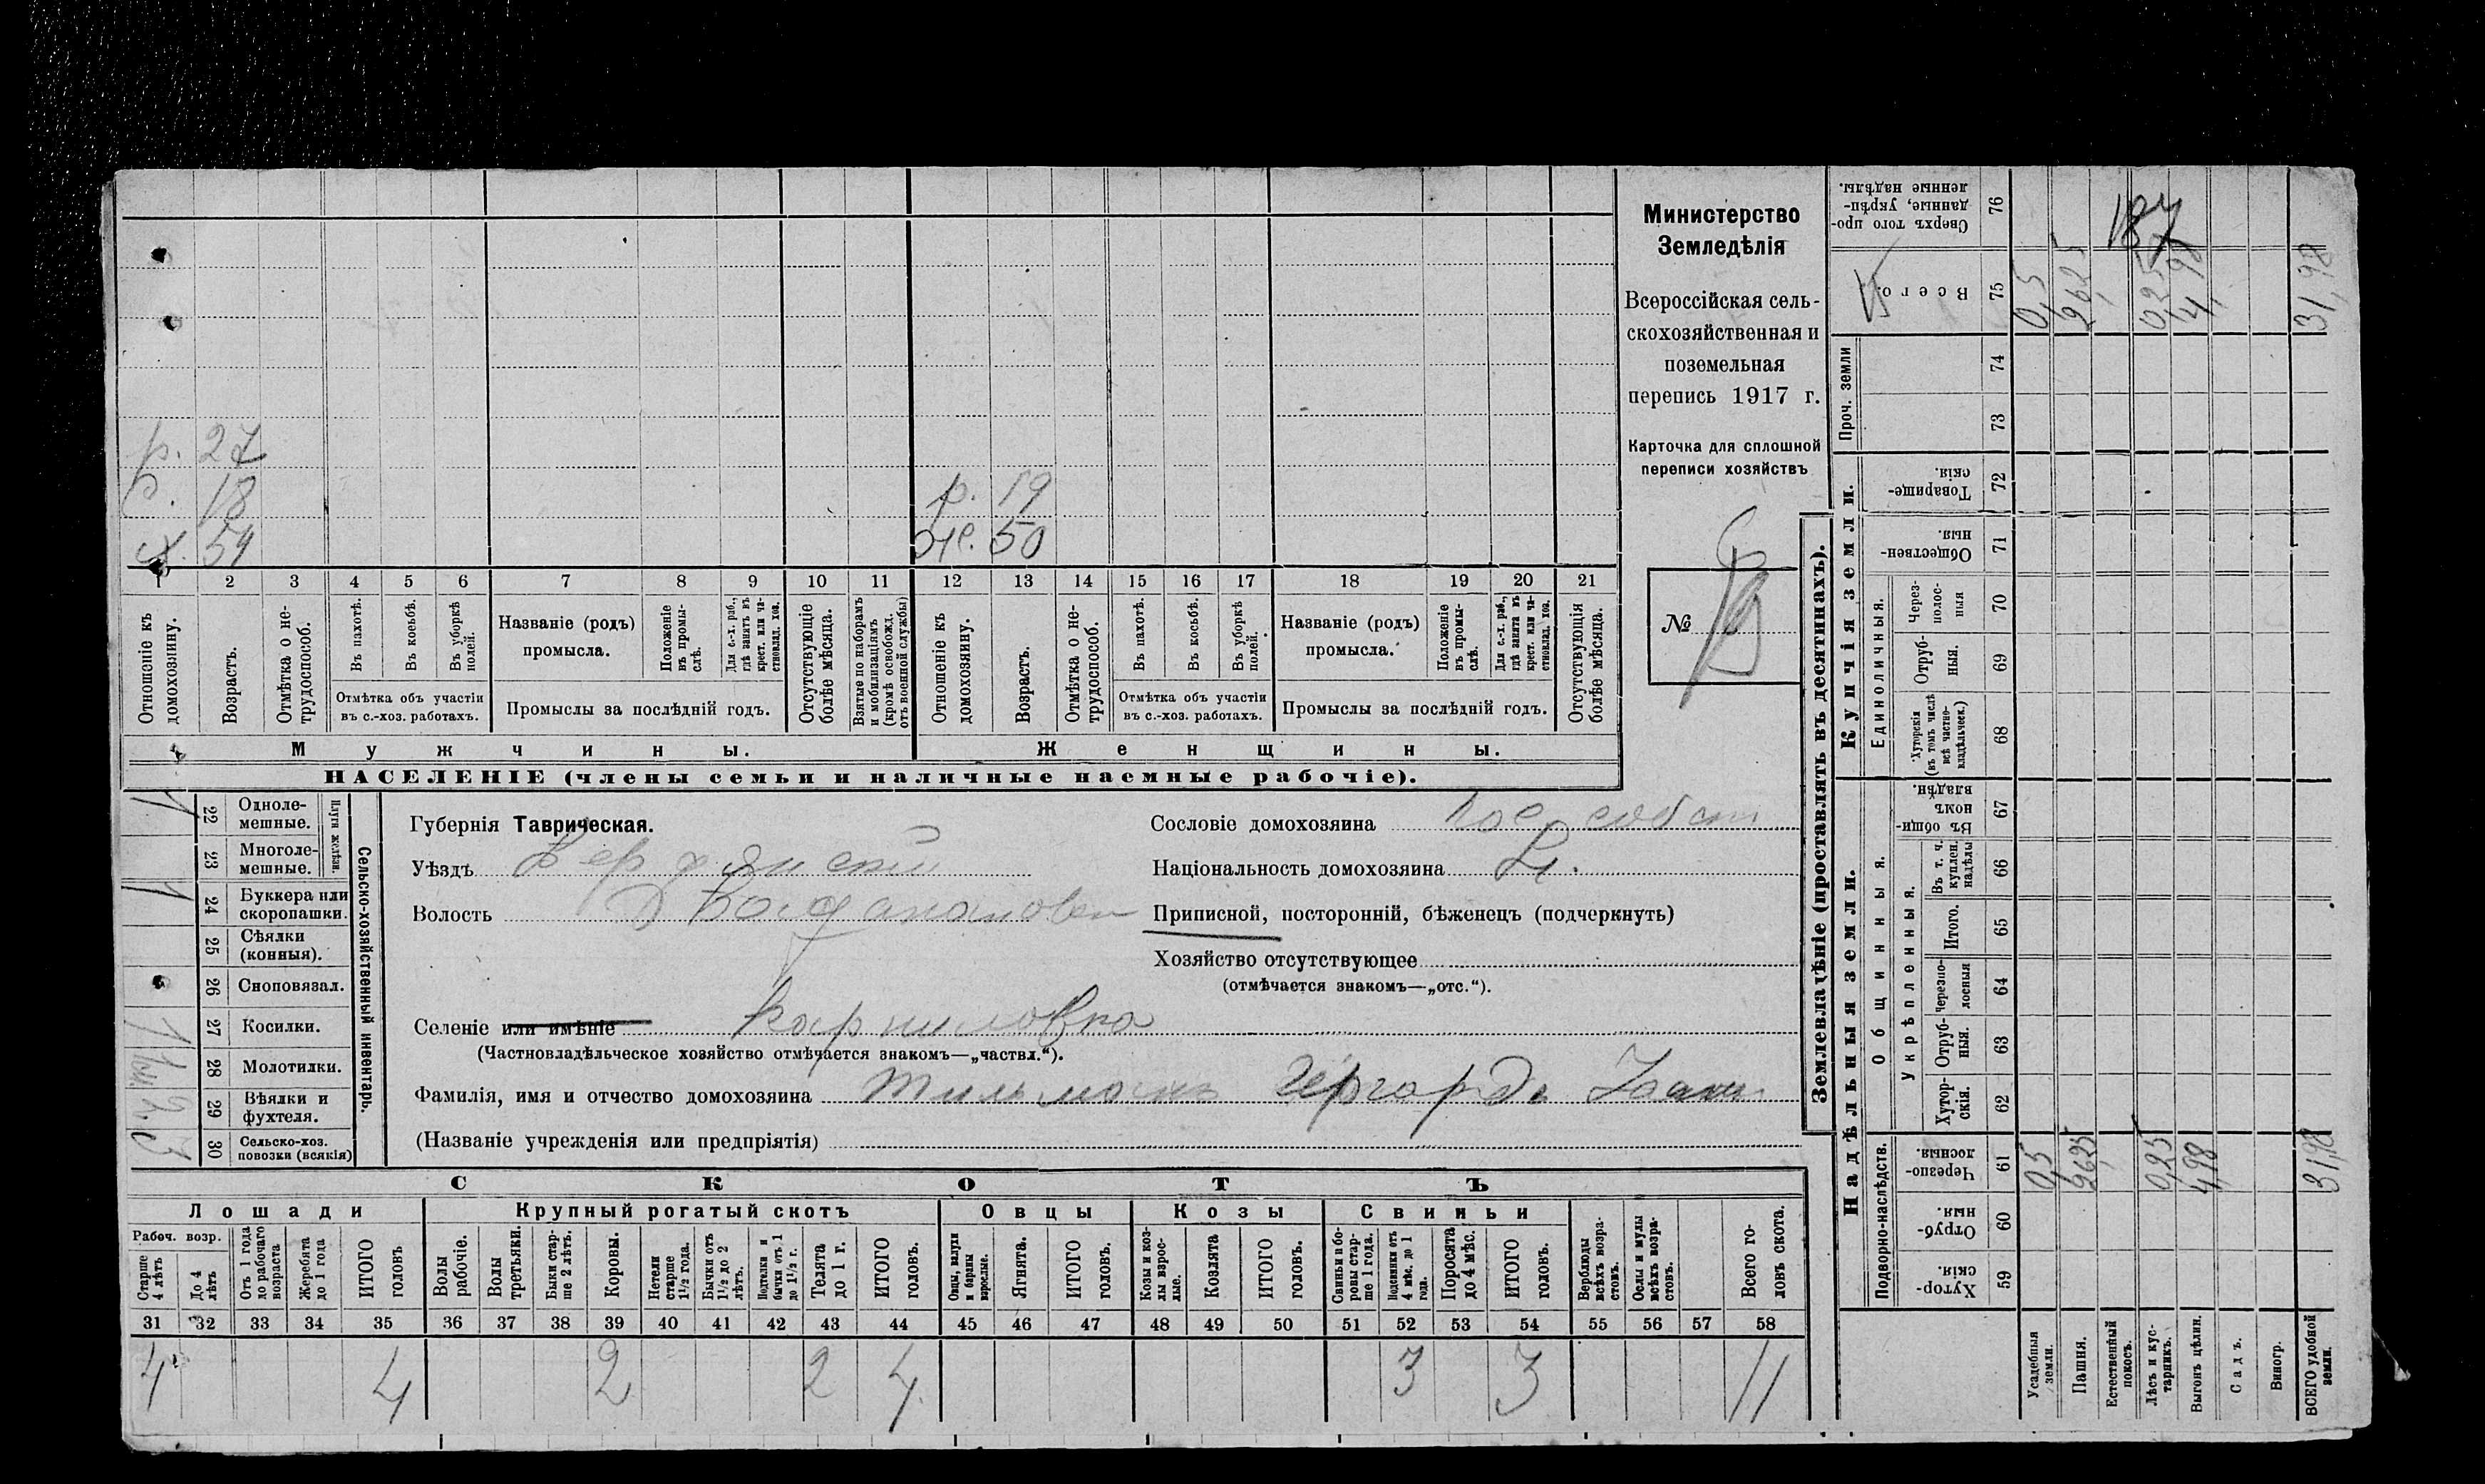 р. 27
р. 18 р. 19
х. 54 же. 50
1 2 3 4 5 6 7 8 9 10 11 12 13 14 15 16 17 18 19 20 21
Отношеніе къ домохозяину.
Возрастъ.
Отмѣтка о не-трудоспособ.
Въ пахотѣ.
Въ косьбѣ.
Въ уборкѣ полей.
Отмѣтка объ участіи
въ с.-хоз. работахъ.
Названіе (родъ)
промысла.
Положеніе въ промы-слѣ.
Для с.-х. раб., гдѣ занятъ въ крест. или ча-стновлад. хоз.
Промыслы за послѣдній годъ.
Отсутствующіе болѣе мѣсяца.
Взятые по наборамъ и мобилизаціямъ (кромѣ освобожд. отъ военной службы)
Отношеніе къ домохозяину.
Возрастъ.
Отмѣтка о не-трудоспособ.
Въ пахотѣ.
Въ косьбѣ.
Въ уборкѣ полей.
Отмѣтка объ участіи
въ с.-хоз. работахъ.
Названіе (родъ)
промысла.
Положеніе въ промы-слѣ.
Для с.-х. раб., гдѣ занята въ крест. или ча-стновлад. хоз.
Промыслы за послѣдній годъ.
Отсутствующія болѣе мѣсяца.
Мужчины. Женщины.
НАСЕЛЕНІЕ (члены семьи и наличные наемные рабочіе).
Министерство
Земледѣлія
Всероссійская сель-
скохозяйственная и
поземельная
перепись 1917 г.
Карточка для сплошной
переписи хозяйствъ
№
Сельско-хозяйственный инвентарь.
Плуги желѣзн.
1 22 Одноле-мешные.
23 Многоле-мешные.
1 24 Буккера или скоропашки.
25 Сѣялки (конныя).
26 Сноповязал.
1 27 Косилки.
28 Молотилки.
29 Вѣялки и фухтеля.
3 30 Сельско-хоз. повозки (всякія)
Губернія Таврическая.
Уѣздъ Бердянскій
Волость
Селеніе или имѣніе Карниловка
(Частновладѣльческое хозяйство отмѣчается знакомъ—„частвл.“).
Фамилія, имя и отчество домохозяина Тильманъ Гергардъ
(Названіе учрежденія или предпріятія)
Сословіе домохозяина пос. собст
Національность домохозяина
Приписной, посторонній, бѣженецъ (подчеркнуть)
Хозяйство отсутствующее
(отмѣчается знакомъ—„отс.“).
СКОТЪ
Лошади Крупный рогатый скотъ Овцы Козы Свиньи
Рабоч. возр.
Старше 4 лѣтъ
До 4 лѣтъ
Отъ 1 года до рабочаго возраста
Жеребята до 1 года
ИТОГО головъ
Волы рабочіе.
Волы третьяки.
Быки стар-ше 2 лѣтъ.
Коровы.
Нетели старше 1½ года.
Бычки отъ 1½ до 2 лѣтъ.
Подтелки и бычки отъ 1 до 1½ г.
Телята до 1 г.
ИТОГО головъ.
Овцы, валухи и бараны взрослые.
Ягнята.
ИТОГО головъ.
Козы и коз-лы взрос-лые.
Козлята
ИТОГО головъ.
Свиньи и бо-ровы стар-ше 1 года.
Подсвинки отъ 4 мѣс. до 1 года.
Поросята до 4 мѣс.
ИТОГО головъ.
Верблюды всѣхъ возра-стовъ.
Ослы и мулы всѣхъ возра-стовъ.
Всего го-ловъ скота.
31 32 33 34 35 36 37 38 39 40 41 42 43 44 45 46 47 48 49 50 51 52 53 54 55 56 57 58
4 4 2 2 4 3 3 11
Землевладѣніе (проставлять въ десятинахъ).
Купчія земли.
Надѣльныя земли.
Проч. земли
Единоличныя.
Общинныя.
Укрѣпленныя.
Подворно-наслѣдств.
Сверхъ того про-данные, укрѣп-ленные надѣлы. 76
Всего. 75 0,5 26,25 0,25 4,98 31,98
74
73
Товарище-скія. 72
Обществен-ныя. 71
Через-полос-ныя 70
Отруб-ныя. 69
Хуторскія (въ томъ числѣ всѣ частно-владѣльческ.) 68
Въ общи-номъ владѣн. 67
Въ т. ч. куплен. надѣлы 66
Итого. 65
Черезпо-лосныя 64
Отруб-ныя. 63
Хутор-скія. 62
Черезпо-лосныя. 61 0,5 26,25 0,25 4,98 31,98
Отруб-ныя. 60
Хутор-скія. 59
Усадебныя земли.
Пашня.
Естественный покосъ.
Лѣсъ и кус-тарникъ.
Выгонъ цѣлин.
Садъ.
Виногр.
ВСЕГО удобной земли.